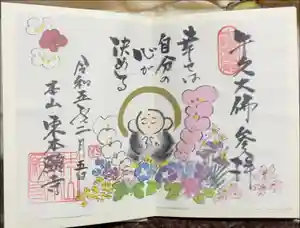 牛久大佛 参拝
幸せは
自分の
心が
決める
令和五年二月五日
本山 東本願寺